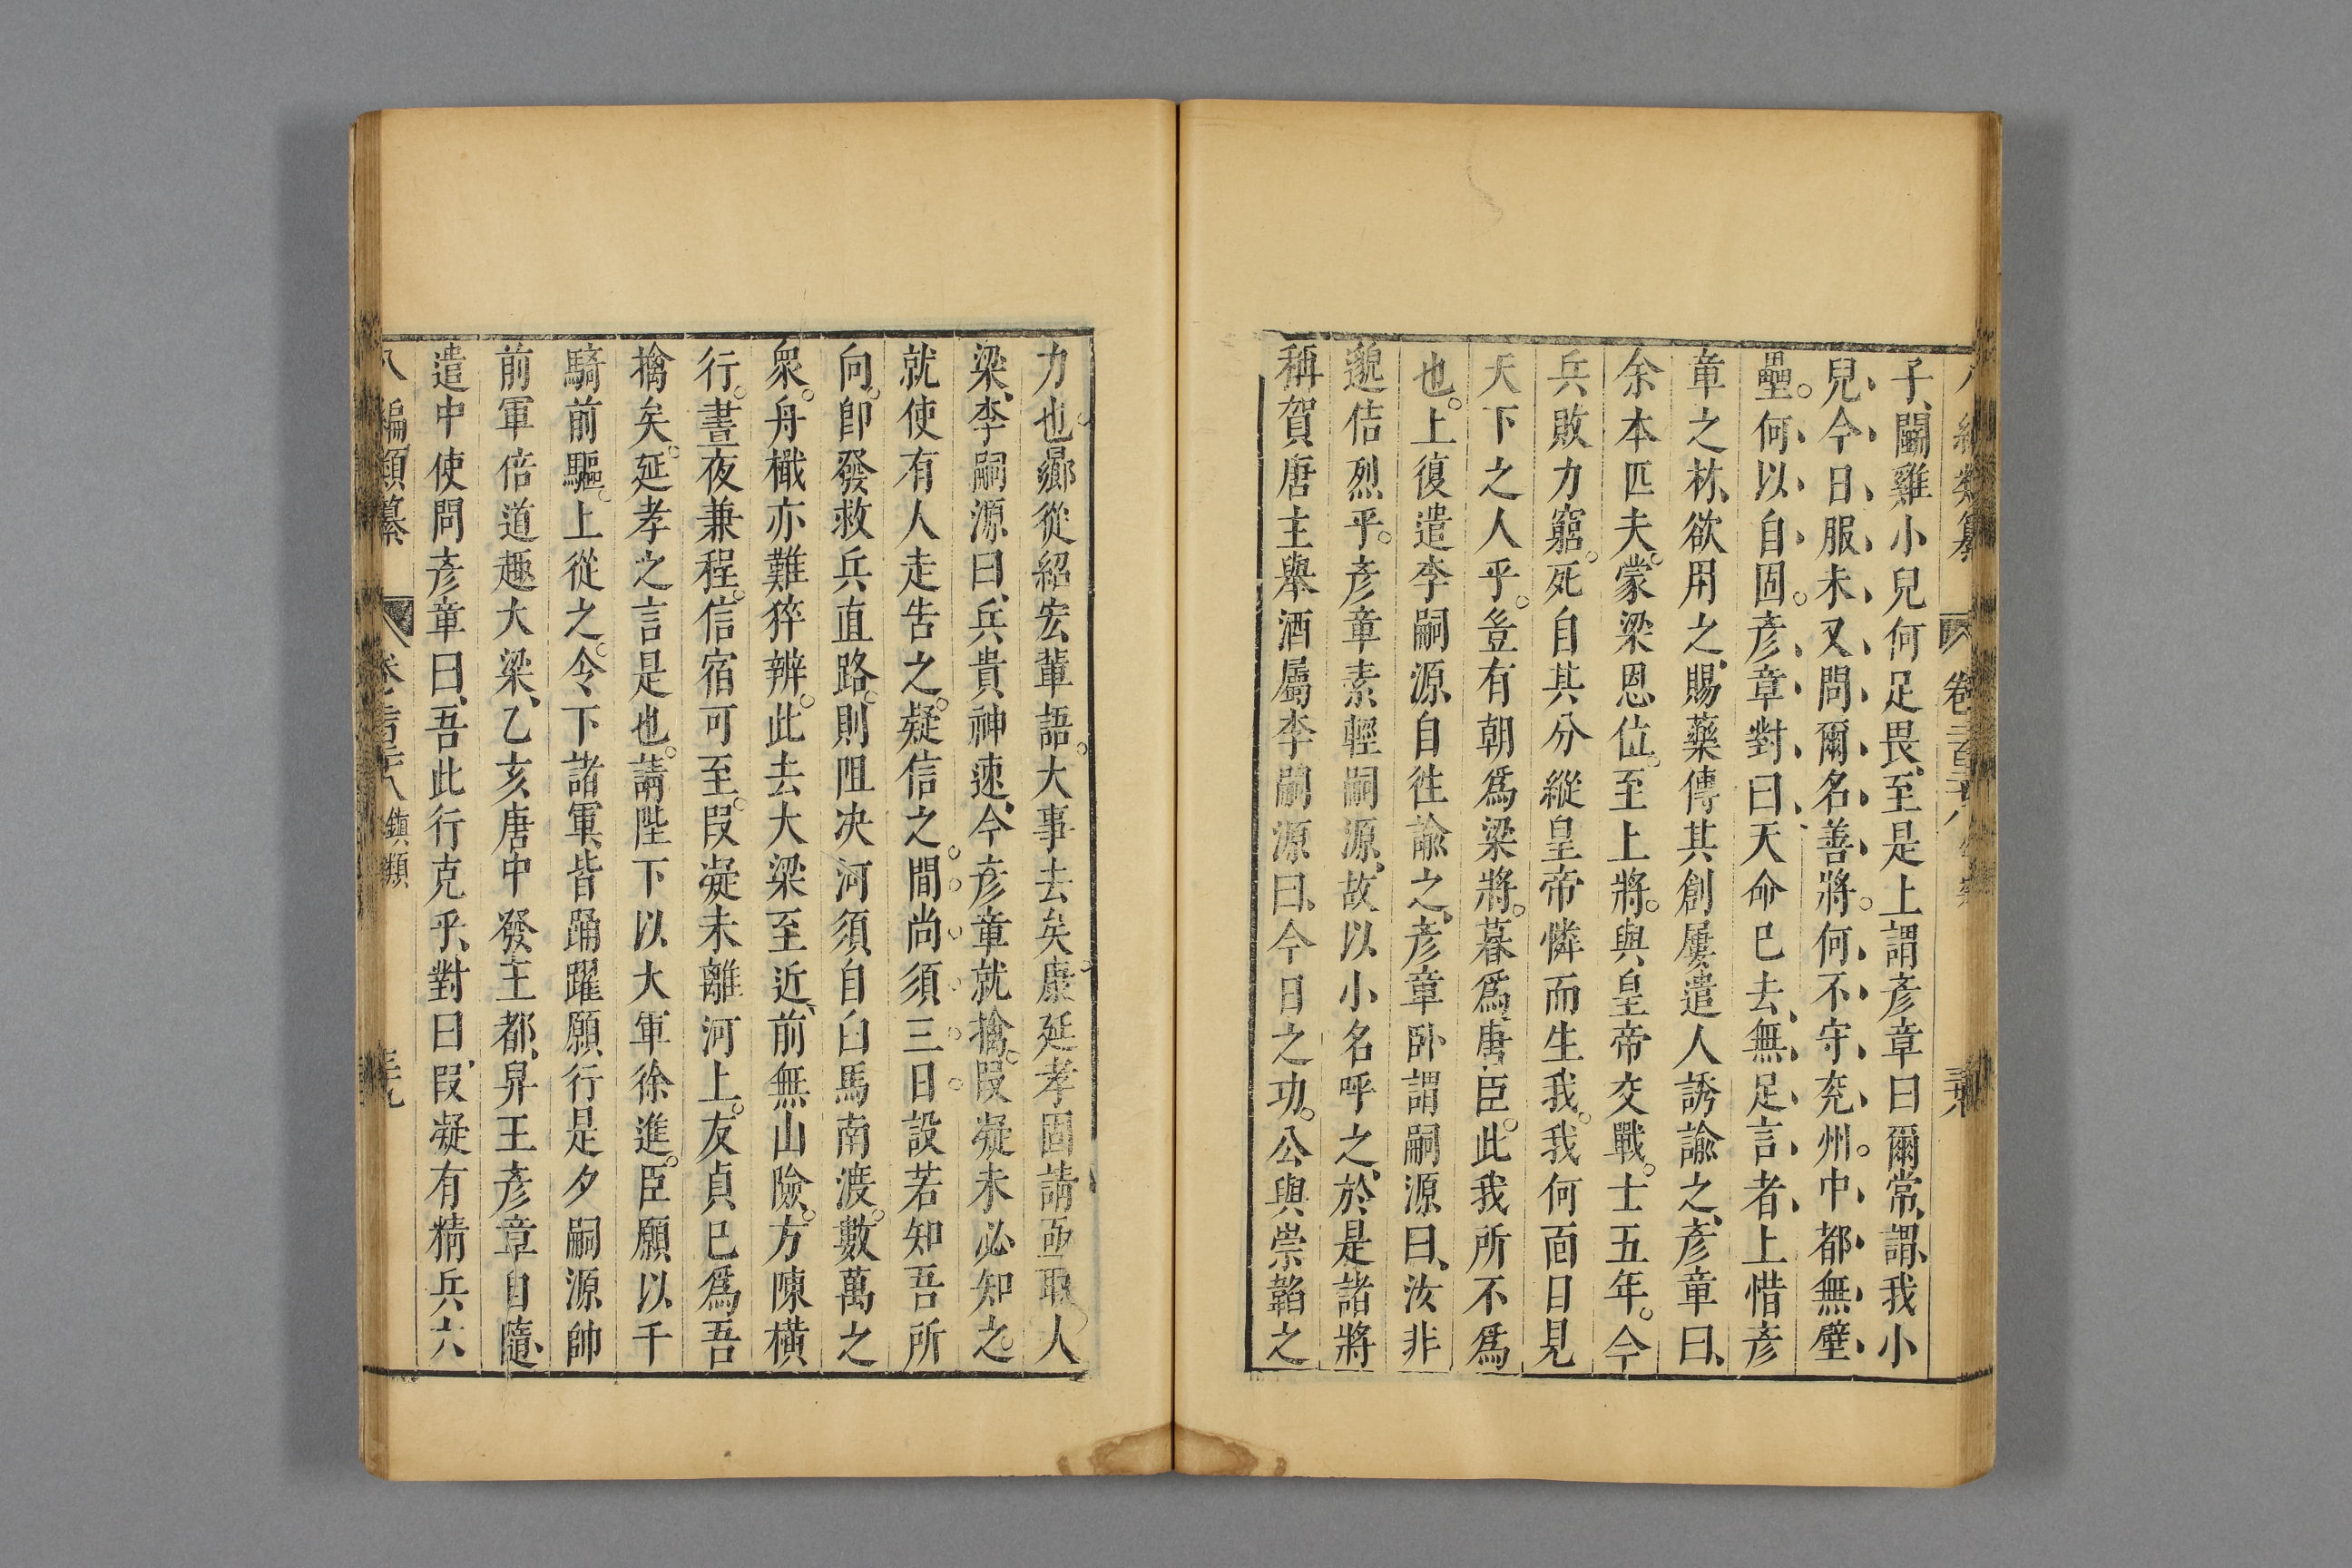 子、鬭雞小兒何足畏、至是上謂彥章曰爾常、謂、我小
兒、今日、服未又問爾名善將。何不守兖州。中都無壁
壘。何以自固。彥章對曰、天命已去、無足言者、上惜彥
章之材、欲用之、賜藥傅其創屢遣人誘諭之、彥章曰、
余本匹夫。蒙梁恩位。至上將。與皇帝交戰。士五年。今
兵敗力窮。死自其分縱皇帝憐而生我。我何面目見
天下之人乎。豈有朝爲梁將。暮爲唐臣。此我所不爲
也。上復遣李嗣源自徃諭之、彥章卧謂嗣源曰、汝非
邈佶烈乎。彥章素輕嗣源、故以小名呼之、於是諸將
稱賀唐主舉酒屬李嗣源曰、今日之功。公與崇韜之
力也曏從紹宏輩語。大事去矣康延孝固請亟取人
梁、李嗣源曰、兵貴神速、今彥章就擒。段凝未必知之
就使有人走告之。疑信之間尚須三日設若知吾所
向。卽發救兵直路。則阻决河須自白馬南渡。數萬之
衆。舟檝亦難猝辨。此去大梁至近、前無山險。方陳橫
行。晝夜兼程。信宿可至。段凝未離河上。友貞已爲吾
擒矣。延孝之言是也。請陛下以大軍徐進。臣願以千
騎前驅。上從之。令下諸軍皆踊躍願行是夕嗣源帥
前軍倍道趣大梁、乙亥唐中發主都、舁王彥章自隨、
遣中使問彥章曰、吾此行克乎、對曰、段凝有精兵六
編類纂 卷 鎮類